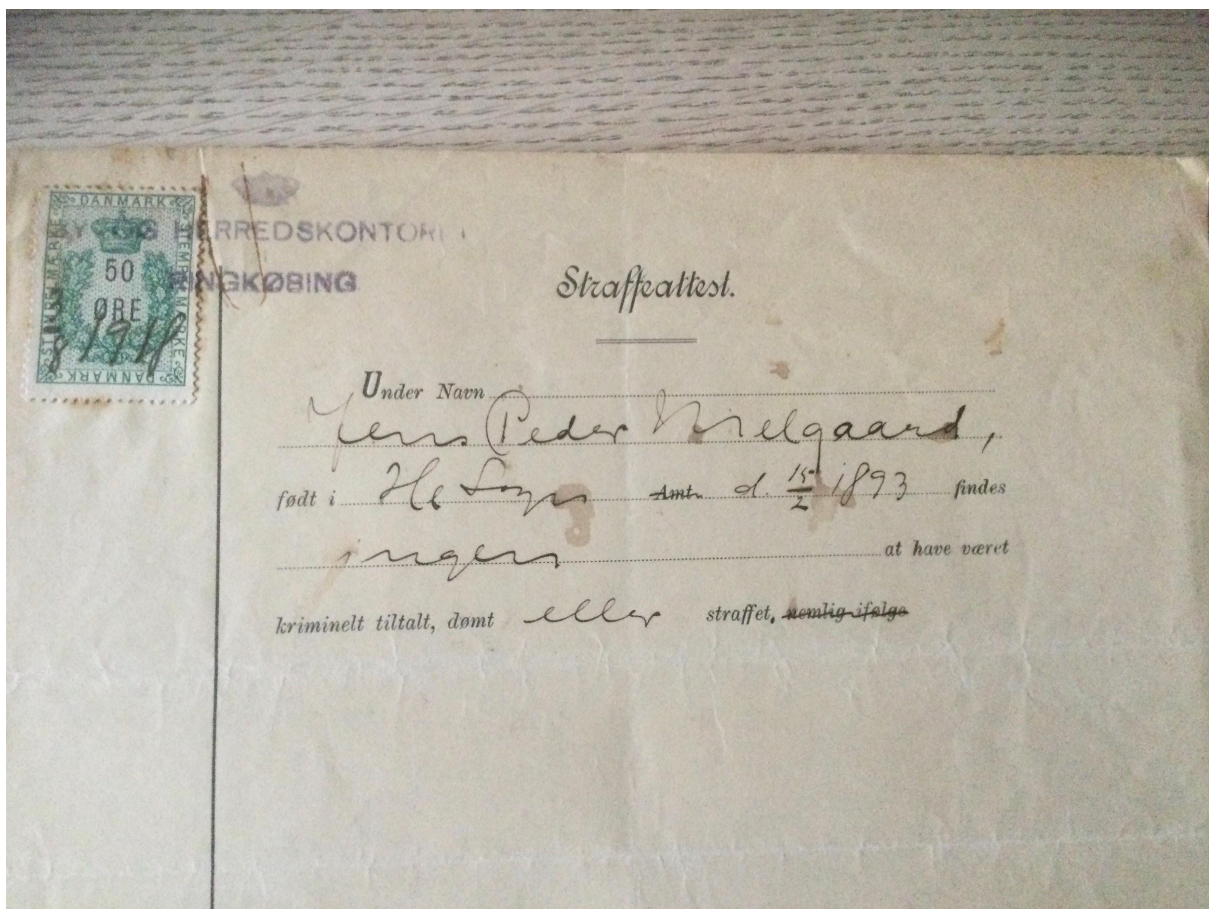 DANMARK
STEMPELMÆRKE
STEMPELMÆRKE
50
ØRE
DANMARK
1918
BY OG HERREDSKONTORET
RINGKØBING
Straffeattest.
Under Navn
Jens Peder Melgaard,
født i He Sogn Amt d. 15/2 1893 findes
ingen at have været
kriminelt tiltalt, dømt eller straffet, nemlig ifølge